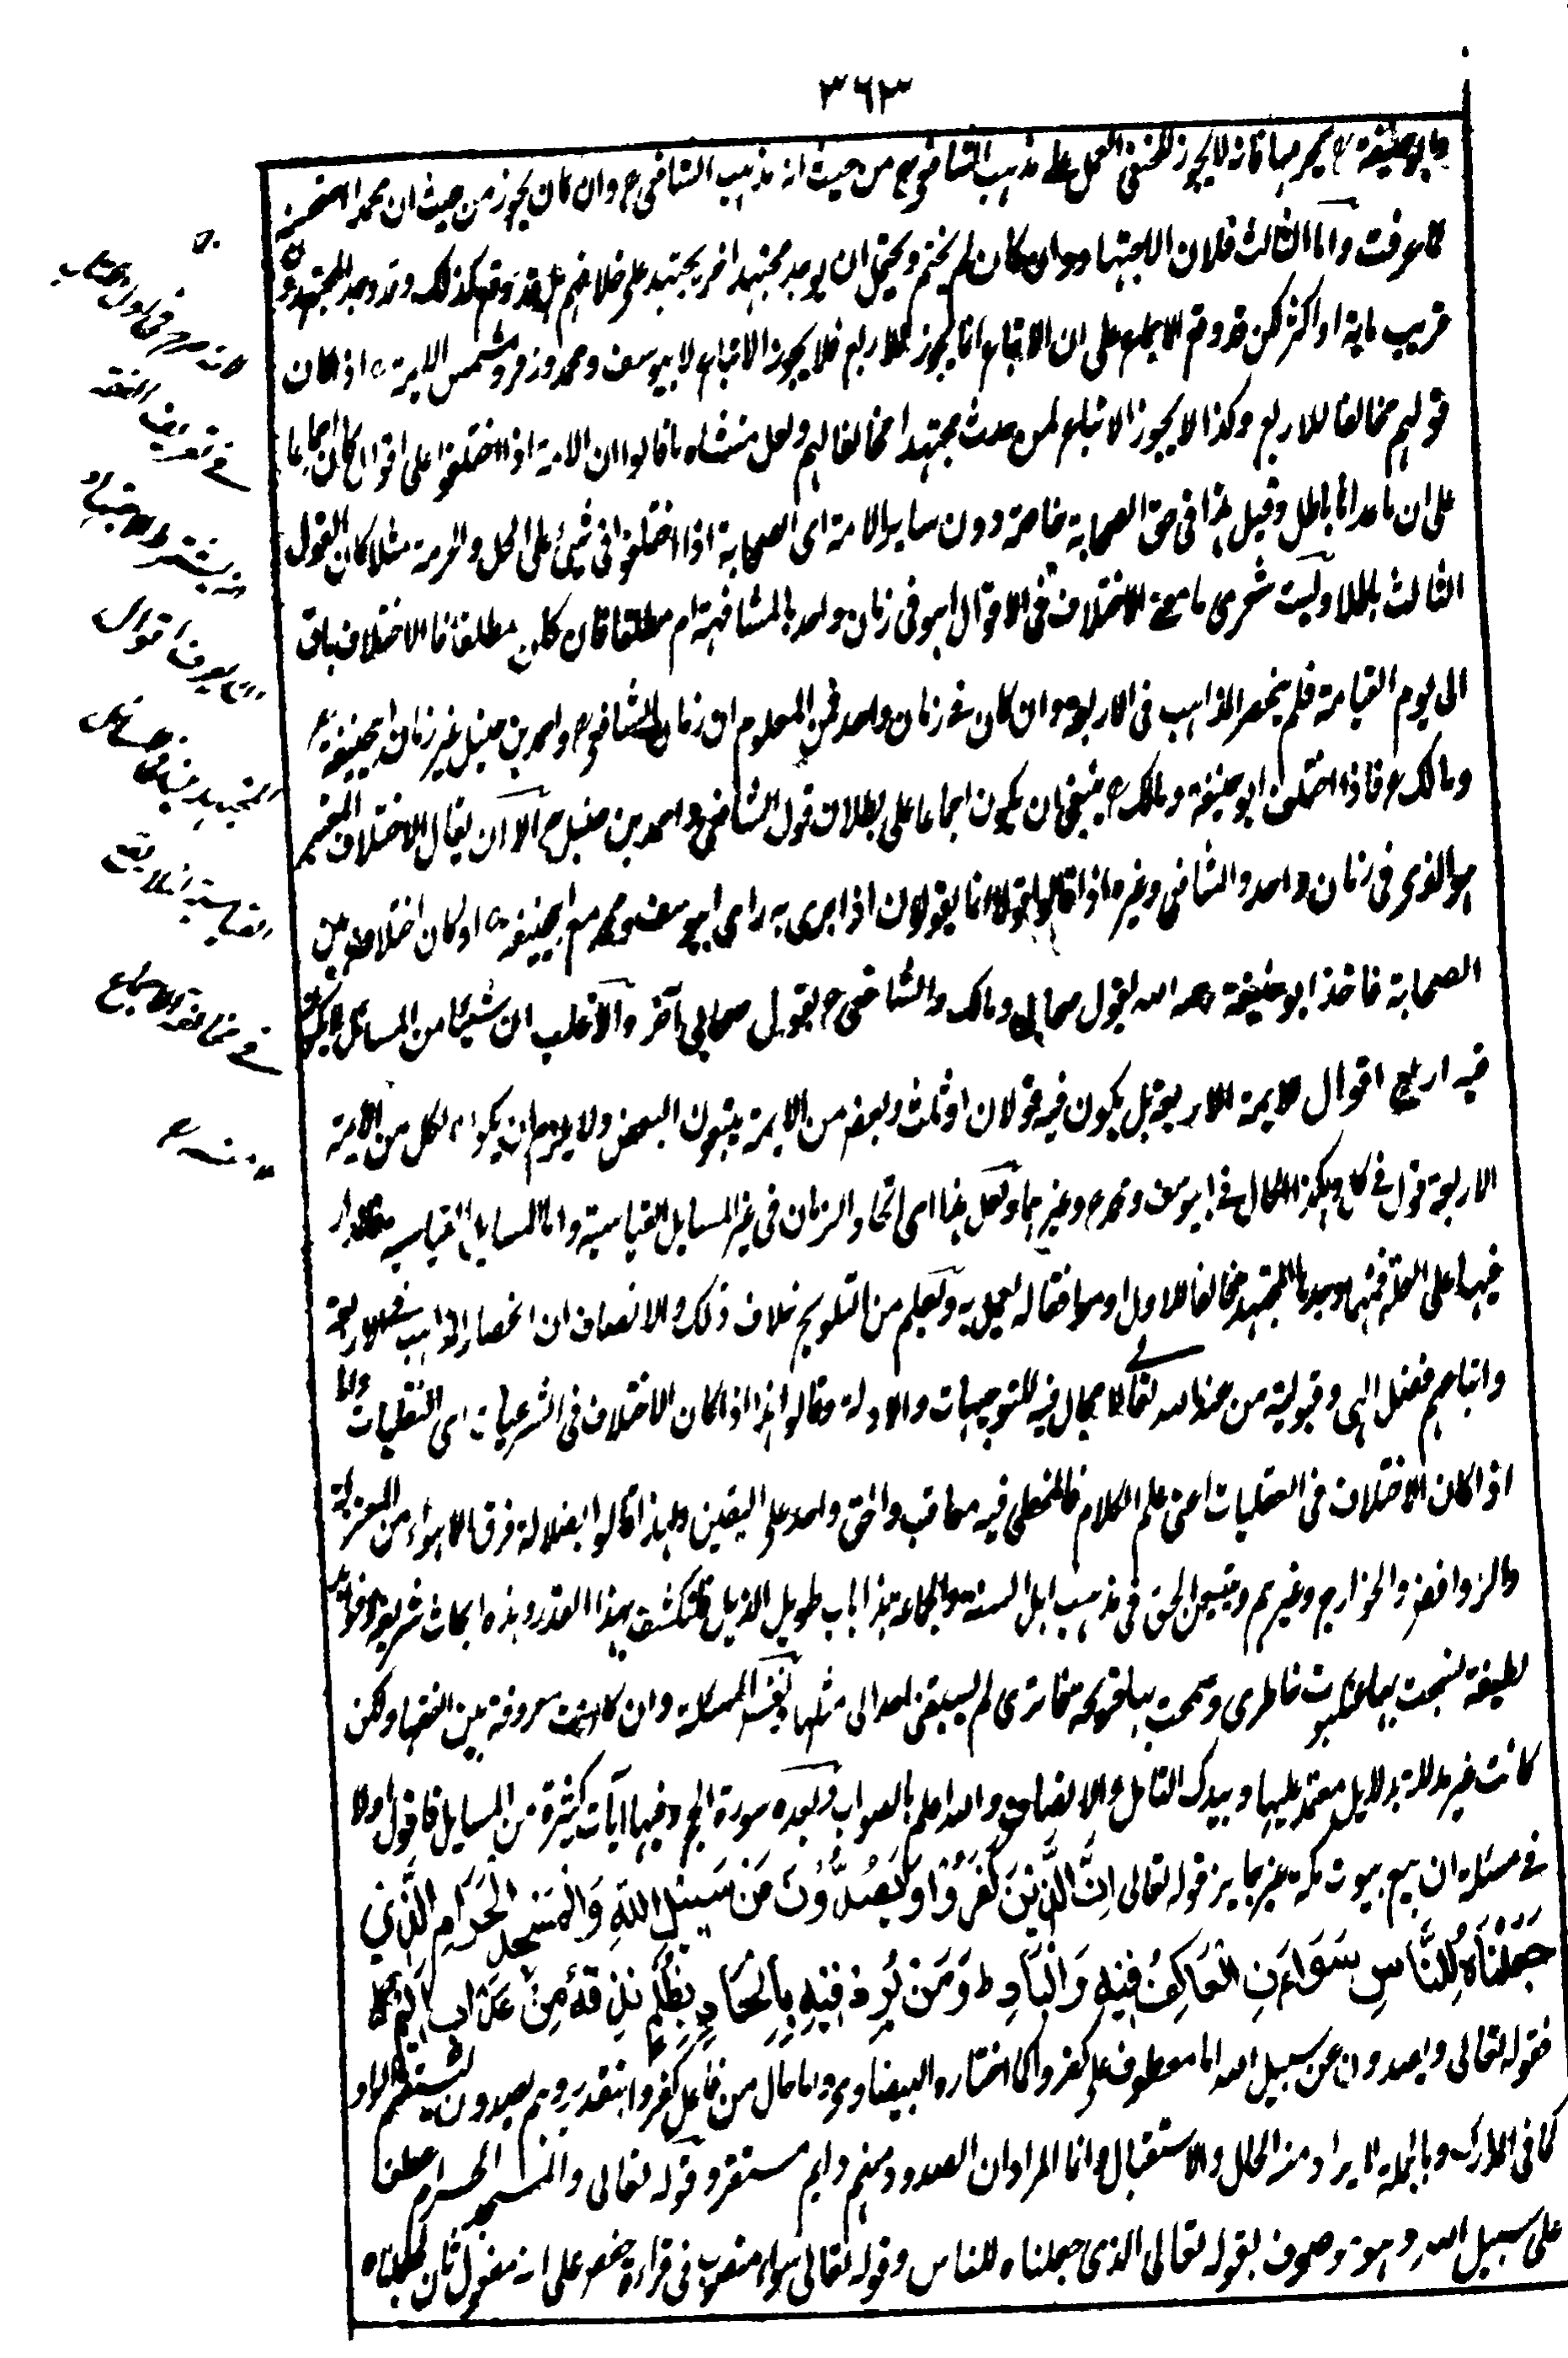 ٣٦٣
وابو حنيفة رح يحرمها فانه لا يجوز للحنفى العمل على مذهب الشافعى رح من حيث انه مذهب الشافعى رح وان كان يجوز من حيث ان محمدا استحسنه
كما عرفت واما الثالث فلان الاجتهاد وان كان لم يختم ويحتمل ان يوجد مجتهد اخر يجتهد على خلافهم بل قد وقع كذلك وقد وجد المجتهدون
قريب ماية او اكثر لكن قد وقع الاجماع على ان الاتباع انما يجوز للاربع فلا يجوز الاتباع لابى يوسف ومحمد وزفر وشمس الايمة رح اذا كان
قولهم مخالفا للاربع وكذا لا يجوز الاتباع لمن حدث مجتهدا مخالفا لهم ولعل منشاه ما قالوا ان الامة اذا اختلفوا على اقوال كان اجماعا
على ان ما عداها باطل وقيل هذا فى حق الصحابة خاصة دون ساير الامة اى الصحابة اذا اختلفوا فى شئ على الحل والحرمة مثلا كان القول
الثالث باطلا وليت شعرى ما معنى الاختلاف فى الاقوال اهو فى زمان واحد بالمشافهة ام مطلقا فان كان مطلقا فالاختلاف باق
الى يوم القيامة فلم ينحصر المذاهب فى الاربعة وان كان فى زمان واحد فمن المعلوم ان زمان الشافعى رح واحمد بن حنبل غير زمان ابيحنيفة رح
ومالك رح فاذا اختلف ابو حنيفة ومالك رح ينبغى ان يكون اجماعا على بطلان قول الشافعى واحمد بن حنبل رح الا ان يقال الاختلاف المعتبر
هو الذى فى زمان واحد والشافعى وغيره اذا قالوا قولا انما يقولون اذا جرى به راى ابى يوسف ومحمد مع ابيحنيفة رح او كان اختلاف بين
الصحابة فاخذ ابو حنيفة رحمه الله بقول صحابى ومالك والشافعى رح بقول صحابى آخر والاغلب ان شيئا من المسائل لا يكون
فيه اربع اقوال للايمة الاربعة بل يكون فيه قولان او ثلث وبعض من الايمة يتبعون البعض ولا يلزم ان يكون لكل من الايمة
الاربعة قول فى كل وهكذا الحال فى ابى يوسف ومحمد رح وغيرهما ولعل هذا اى اتحاد الزمان فى غير المسايل القياسية واما المسايل القياسية فمدار
فيها على العلة فمنها وجد ها المجتهد مخالفا للاول او موافقا له يعمل به وتعلم من التلويح خلاف ذلك والانصاف ان انحصار المذاهب فى الاربعة
واتباعهم فضل الهى وقبولية من عند الله تعالى لا مجال فيه للتوجيهات والادلة وقالوا هذا اذا كان الاختلاف فى الشرعيات اى النقليات واما
اذا كان الاختلاف فى العقليات اعنى علم الكلام فالمخطى فيه معاقب والحق واحد على اليقين ولهذا قالوا بضلالة فرق الاهواء من المعتزلة
والروافض والخوارج وغيرهم وتبيين الحق فى مذهب اهل السنة والجماعة هذا باب طويل الذيل فلنكتف بهذا القدر وهذه ابحاث شريفة وفوائد
لطيفة نسجت بها عنكبوت خاطرى وسمحت بها قريحة فاترى لم يسبقنى احد الى مثلها ونفس المسئلة وان كانت معروفة بين الفقهاء ولكن
كانت غير مدللة بدلايل معتمد عليها وبيدك التامل والانصاف والله اعلم بالصواب وبعده سورة الحج وفيها آيات كثيرة من المسايل فاقول اولا
فى مسئلة ان بيع بيوت مكة غير جايز قوله تعالى اِنَّ الَّذِيْنَ كَفَرُوْا وَيَصُدُّوْنَ عَنْ سَبِيْلِ اللّٰهِ وَالْمَسْجِدِ الْحَرَامِ الَّذِيْ
جَعَلْنَاهُ لِلنَّاسِ سَوَاءَنِ الْعَاكِفُ فِيْهِ وَالْبَادِ ط وَمَنْ يُرِدْ فِيْهِ بِاِلْحَادٍ بِظُلْمٍ نُذِقْهُ مِنْ عَذَابٍ اَلِيْمٍ
فقوله تعالى ويصدون عن سبيل الله اما معطوف على كفروا كما اختاره البيضاوى واما حال من فاعل كفروا بتقدير وهم يصدون ليستقيم الواو
كما فى المدارك وبالجملة لا يراد منه الحال والاستقبال وانما المراد ان الصدود منهم دايم مستقر وقوله تعالى والمسجد الحرام عطف
على سبيل الله وهو موصوف بقوله تعالى الذى جعلناه للناس وقوله تعالى سواء منصوب فى قراءة حفص على انه مفعول ثان لجعلناه
فى تعريف الفقه
ان يعرف اقوال
فى مخالفة الاجماع
منه رح